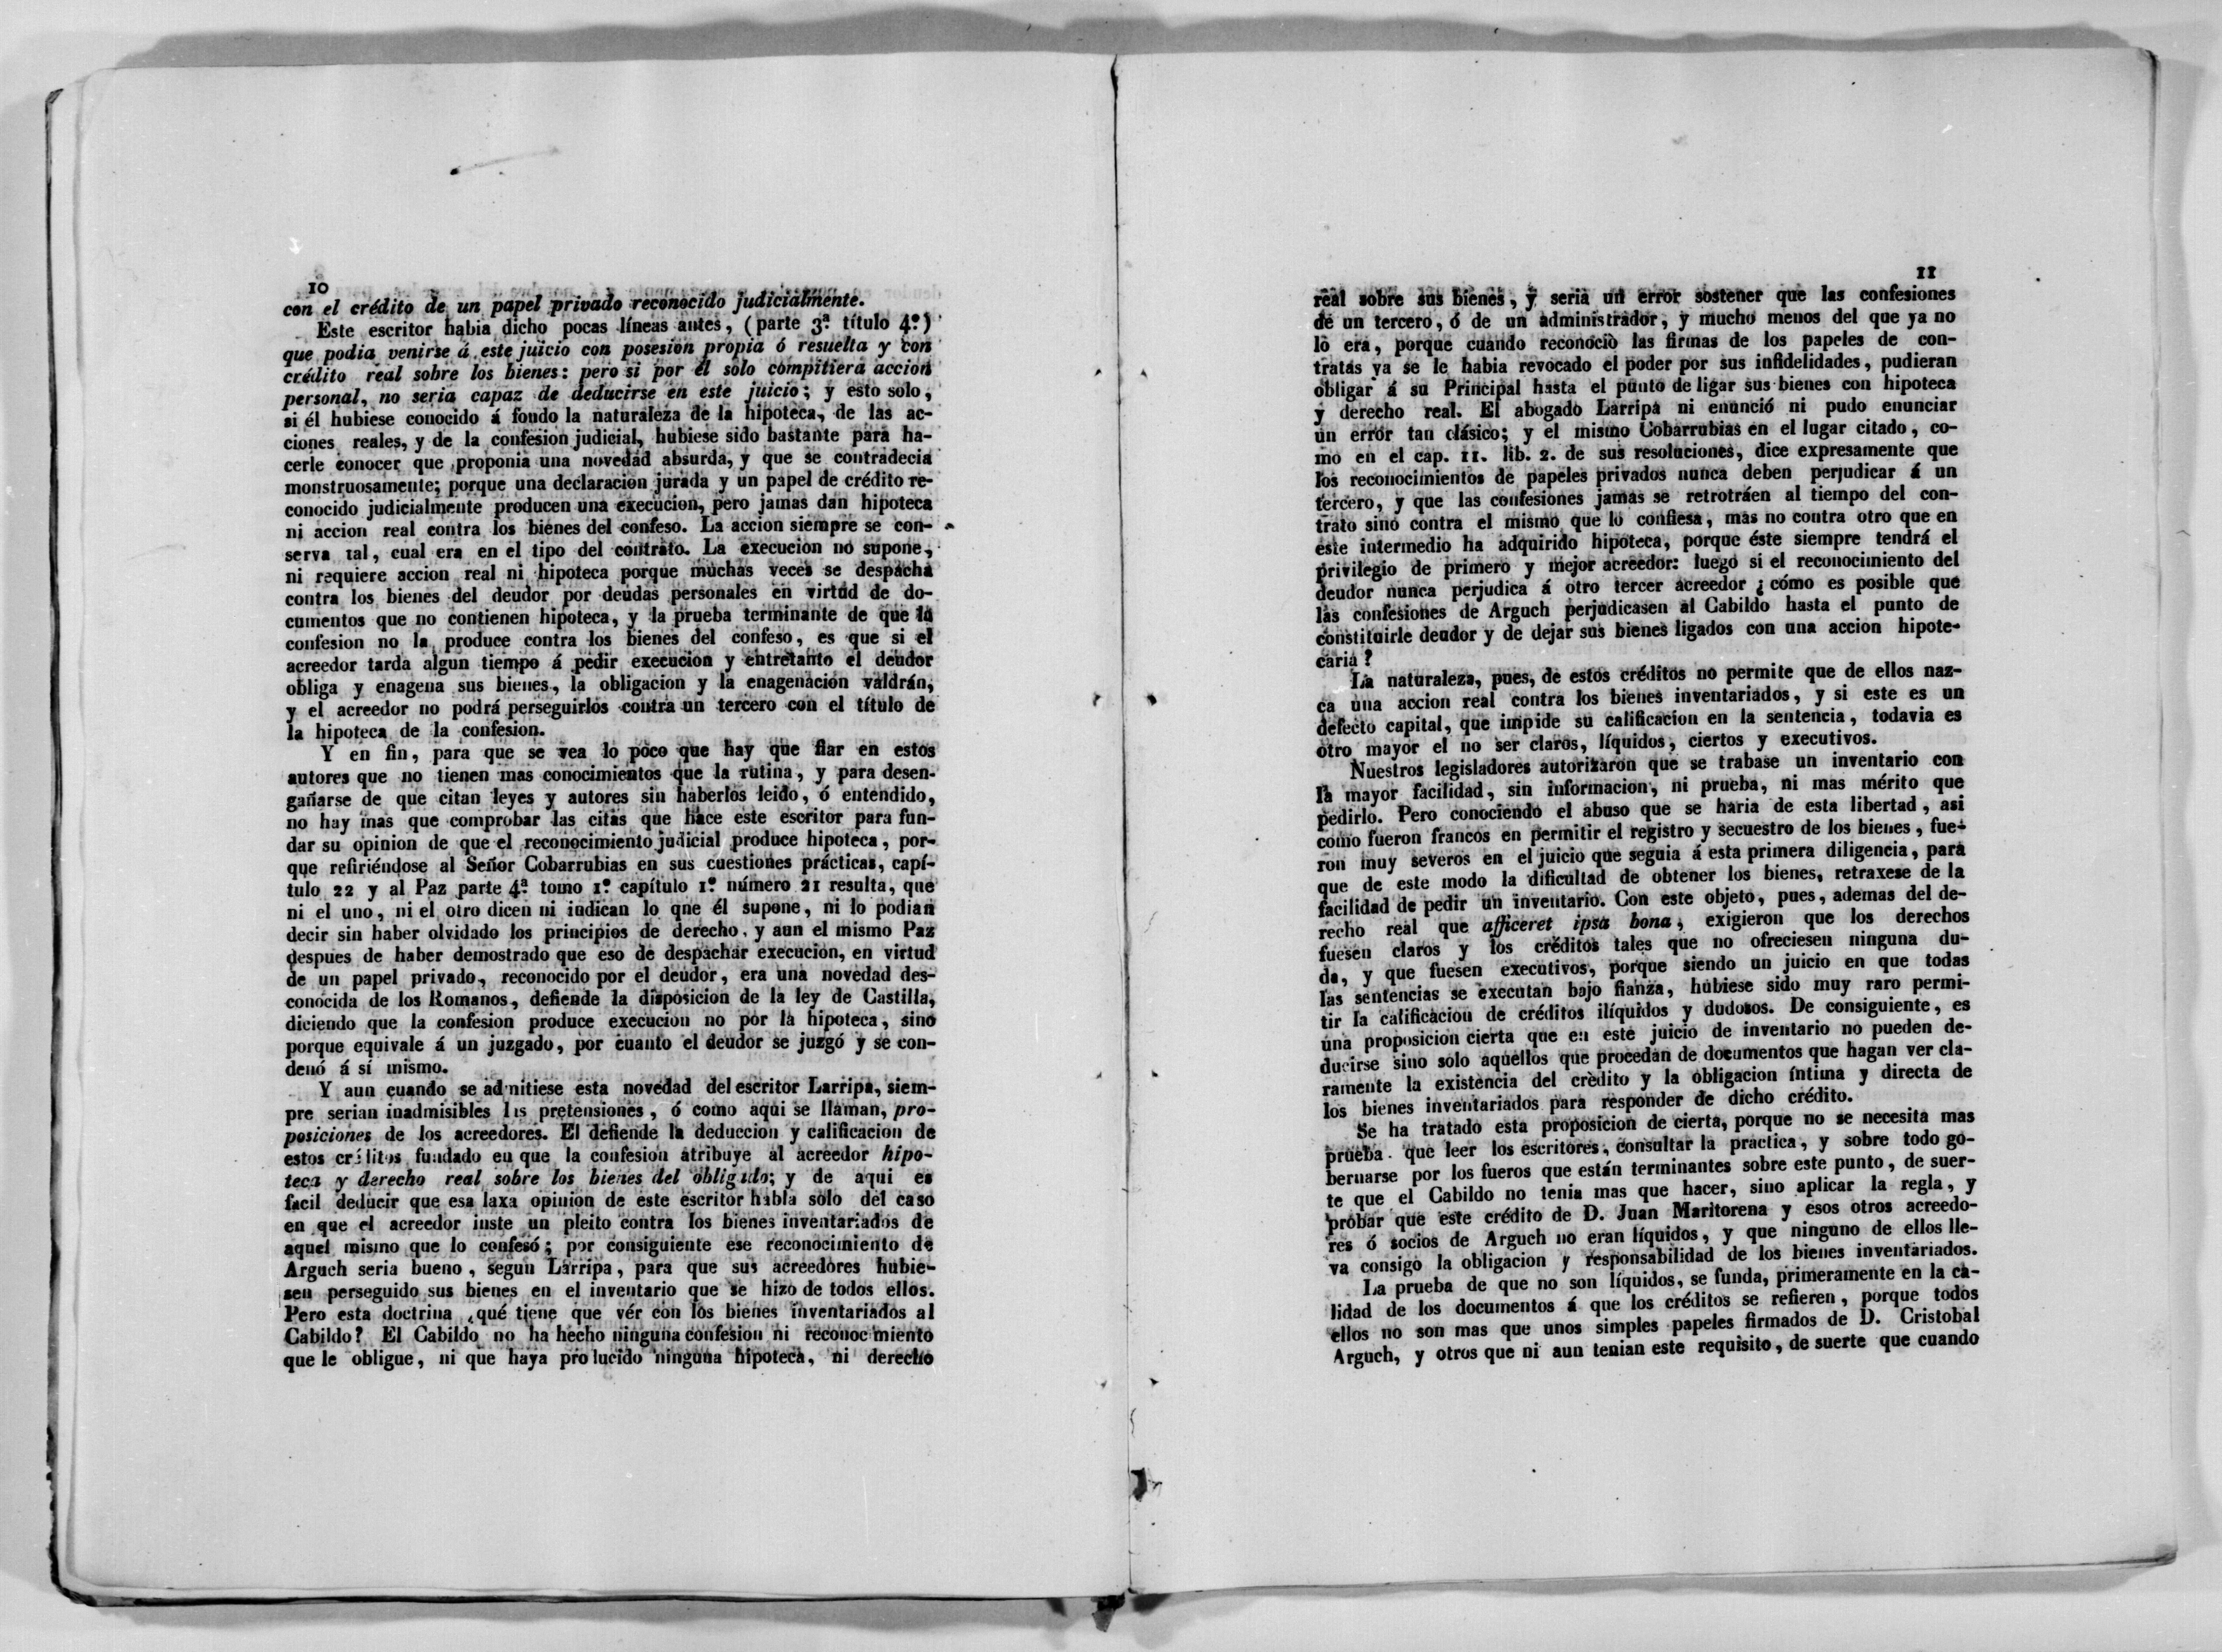 10
con el crédito de un papel privado reconocido judicialmente.
Este escritor habia dicho pocas líneas antes, (parte 3ª título 4º)
que podia venirse á este juicio con posesion propia ó resuelta y con
crédito real sobre los bienes: pero si por él solo compitiera accion
personal, no seria capaz de deducirse en este juicio; y esto solo,
si él hubiese conocido á fondo la naturaleza de la hipoteca, de las ac-
ciones reales, y de la confesion judicial, hubiese sido bastante para ha-
cerle conocer que proponia una novedad absurda, y que se contradecia
monstruosamente; porque una declaracion jurada y un papel de crédito re-
conocido judicialmente producen una execucion, pero jamas dan hipoteca
ni accion real contra los bienes del confeso. La accion siempre se con-
serva tal, cual era en el tipo del contrato. La execucion no supone,
ni requiere accion real ni hipoteca porque muchas veces se despacha
contra los bienes del deudor por deudas personales en virtud de do-
cumentos que no contienen hipoteca, y la prueba terminante de que la
confesion no la produce contra los bienes del confeso, es que si el
acreedor tarda algun tiempo á pedir execucion y entretanto el deudor
obliga y enagena sus bienes, la obligacion y la enagenacion valdrán,
y el acreedor no podrá perseguirlos contra un tercero con el título de
la hipoteca de la confesion.
Y en fin, para que se vea lo poco que hay que fiar en estos
autores que no tienen mas conocimientos que la rutina, y para desen-
gañarse de que citan leyes y autores sin haberlos leido, ó entendido,
no hay mas que comprobar las citas que hace este escritor para fun-
dar su opinion de que el reconocimiento judicial produce hipoteca, por-
que refiriéndose al Señor Cobarrubias en sus cuestiones prácticas, capí-
tulo 22 y al Paz parte 4ª tomo 1º capítulo 1º número 21 resulta, que
ni el uno, ni el otro dicen ni indican lo que él supone, ni lo podian
decir sin haber olvidado los principios de derecho, y aun el mismo Paz
despues de haber demostrado que eso de despachar execucion, en virtud
de un papel privado, reconocido por el deudor, era una novedad des-
conocida de los Romanos, defiende la disposicion de la ley de Castilla,
diciendo que la confesion produce execucion no por la hipoteca, sino
porque equivale á un juzgado, por cuanto el deudor se juzgó y se con-
denó á sí mismo.
Y aun cuando se admitiese esta novedad del escritor Larripa, siem-
pre serian inadmisibles las pretensiones, ó como aqui se llaman, pro-
posiciones de los acreedores. El defiende la deduccion y calificacion de
estos créditos fundado en que la confesion atribuye al acreedor hipo-
teca y derecho real sobre los bienes del obligado; y de aqui es
facil deducir que esa laxa opinion de este escritor habla solo del caso
en que el acreedor inste un pleito contra los bienes inventariados de
aquel mismo que lo confesó; por consiguiente ese reconocimiento de
Arguch seria bueno, segun Larripa, para que sus acreedores hubie-
sen perseguido sus bienes en el inventario que se hizo de todos ellos.
Pero esta doctrina ¿qué tiene que vér con los bienes inventariados al
Cabildo? El Cabildo no ha hecho ninguna confesion ni reconocimiento
que le obligue, ni que haya producido ninguna hipoteca, ni derecho
11
real sobre sus bienes, y seria un error sostener que las confesiones
de un tercero, ó de un administrador, y mucho menos del que ya no
lo era, porque cuando reconoció las firmas de los papeles de con-
tratas ya se le habia revocado el poder por sus infidelidades, pudieran
obligar á su Principal hasta el punto de ligar sus bienes con hipoteca
y derecho real. El abogado Larripa ni enunció ni pudo enunciar
un error tan clásico; y el mismo Cobarrubias en el lugar citado, co-
mo en el cap. 11. lib. 2. de sus resoluciones, dice expresamente que
los reconocimientos de papeles privados nunca deben perjudicar á un
tercero, y que las confesiones jamas se retrotráen al tiempo del con-
trato sino contra el mismo que lo confiesa, mas no contra otro que en
este intermedio ha adquirido hipoteca, porque éste siempre tendrá el
privilegio de primero y mejor acreedor: luego si el reconocimiento del
deudor nunca perjudica á otro tercer acreedor ¿cómo es posible que
las confesiones de Arguch perjudicasen al Cabildo hasta el punto de
constituirle deudor y de dejar sus bienes ligados con una accion hipote-
caria?
La naturaleza, pues, de estos créditos no permite que de ellos naz-
ca una accion real contra los bienes inventariados, y si este es un
defecto capital, que impide su calificacion en la sentencia, todavia es
otro mayor el no ser claros, líquidos, ciertos y executivos.
Nuestros legisladores autorizaron que se trabase un inventario con
la mayor facilidad, sin informacion, ni prueba, ni mas mérito que
pedirlo. Pero conociendo el abuso que se haria de esta libertad, asi
como fueron francos en permitir el registro y secuestro de los bienes, fue-
ron muy severos en el juicio que seguia á esta primera diligencia, para
que de este modo la dificultad de obtener los bienes, retraxese de la
facilidad de pedir un inventario. Con este objeto, pues, ademas del de-
recho real que afficeret ipsa bona, exigieron que los derechos
fuesen claros y los créditos tales que no ofreciesen ninguna du-
da, y que fuesen executivos, porque siendo un juicio en que todas
las sentencias se executan bajo fianza, hubiese sido muy raro permi-
tir la calificacion de créditos ilíquidos y dudosos. De consiguiente, es
una proposicion cierta que en este juicio de inventario no pueden de-
ducirse sino solo aquellos que procedan de documentos que hagan ver cla-
ramente la existencia del crèdito y la obligacion íntima y directa de
los bienes inventariados para responder de dicho crédito.
Se ha tratado esta proposicion de cierta, porque no se necesita mas
prueba que leer los escritores, consultar la practica, y sobre todo go-
bernarse por los fueros que están terminantes sobre este punto, de suer-
te que el Cabildo no tenia mas que hacer, sino aplicar la regla, y
probar que este crédito de D. Juan Maritorena y esos otros acreedo-
res ó socios de Arguch no eran líquidos, y que ninguno de ellos lle-
va consigo la obligacion y responsabilidad de los bienes inventariados.
La prueba de que no son líquidos, se funda, primeramente en la ca-
lidad de los documentos á que los créditos se refieren, porque todos
ellos no son mas que unos simples papeles firmados de D. Cristobal
Arguch, y otros que ni aun tenian este requisito, de suerte que cuando